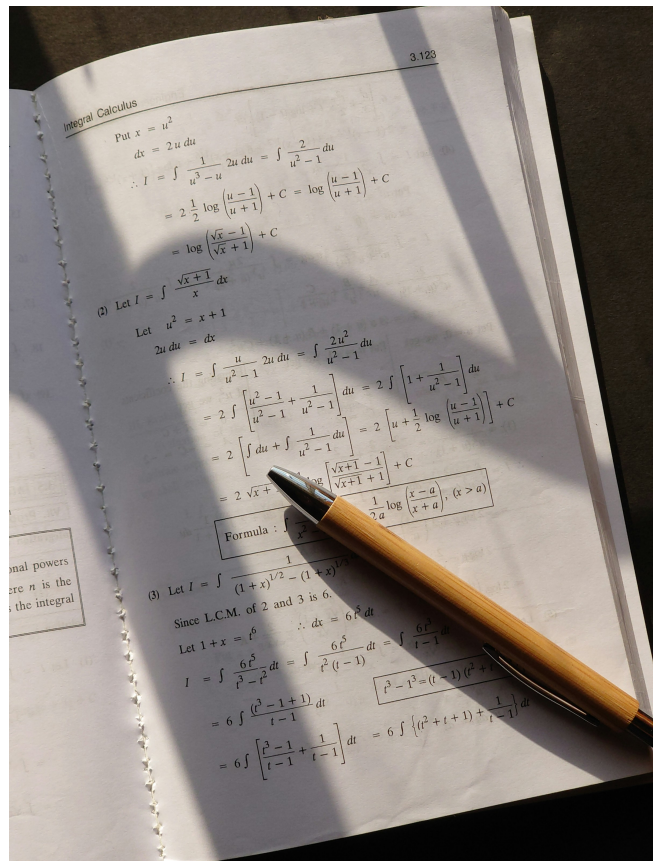 3.123
Integral Calculus
Put x = u²
dx = 2u du
∴ I = ∫ 1/(u³ − u) 2u du = ∫ 2/(u² − 1) du
= 2 1/2 log ((u − 1)/(u + 1)) + C = log ((u − 1)/(u + 1)) + C
= log ((√x − 1)/(√x + 1)) + C
(2) Let I = ∫ √(x + 1)/x dx
Let u² = x + 1
2u du = dx
∴ I = ∫ u/(u² − 1) 2u du = ∫ 2u²/(u² − 1) du
= 2 ∫ [(u² − 1)/(u² − 1) + 1/(u² − 1)] du = 2 ∫ [1 + 1/(u² − 1)] du
= 2 [∫ du + ∫ 1/(u² − 1) du] = 2 [u + 1/2 log ((u − 1)/(u + 1))] + C
= 2 √x + log [(√(x+1) − 1)/(√(x+1) + 1)] + C
Formula : ∫ x² 1/2a log ((x − a)/(x + a)), (x > a)
(3) Let I = ∫ 1/((1 + x)^1/2 − (1 + x)^1/3
Since L.C.M. of 2 and 3 is 6.
Let 1 + x = t⁶ ∴ dx = 6t⁵ dt
I = ∫ 6t⁵/(t³ − t²) dt = ∫ 6t⁵/(t² (t − 1)) dt = ∫ 6t³/(t − 1)
t³ − 1³ = (t − 1) (t² +
= 6 ∫ (t³ − 1 + 1)/(t − 1) dt
= 6 ∫ [(t³ − 1)/(t − 1) + 1/(t − 1)] dt = 6 ∫ {(t² + t + 1) + 1/(t − 1)} dt
onal powers
ere n is the
s the integral